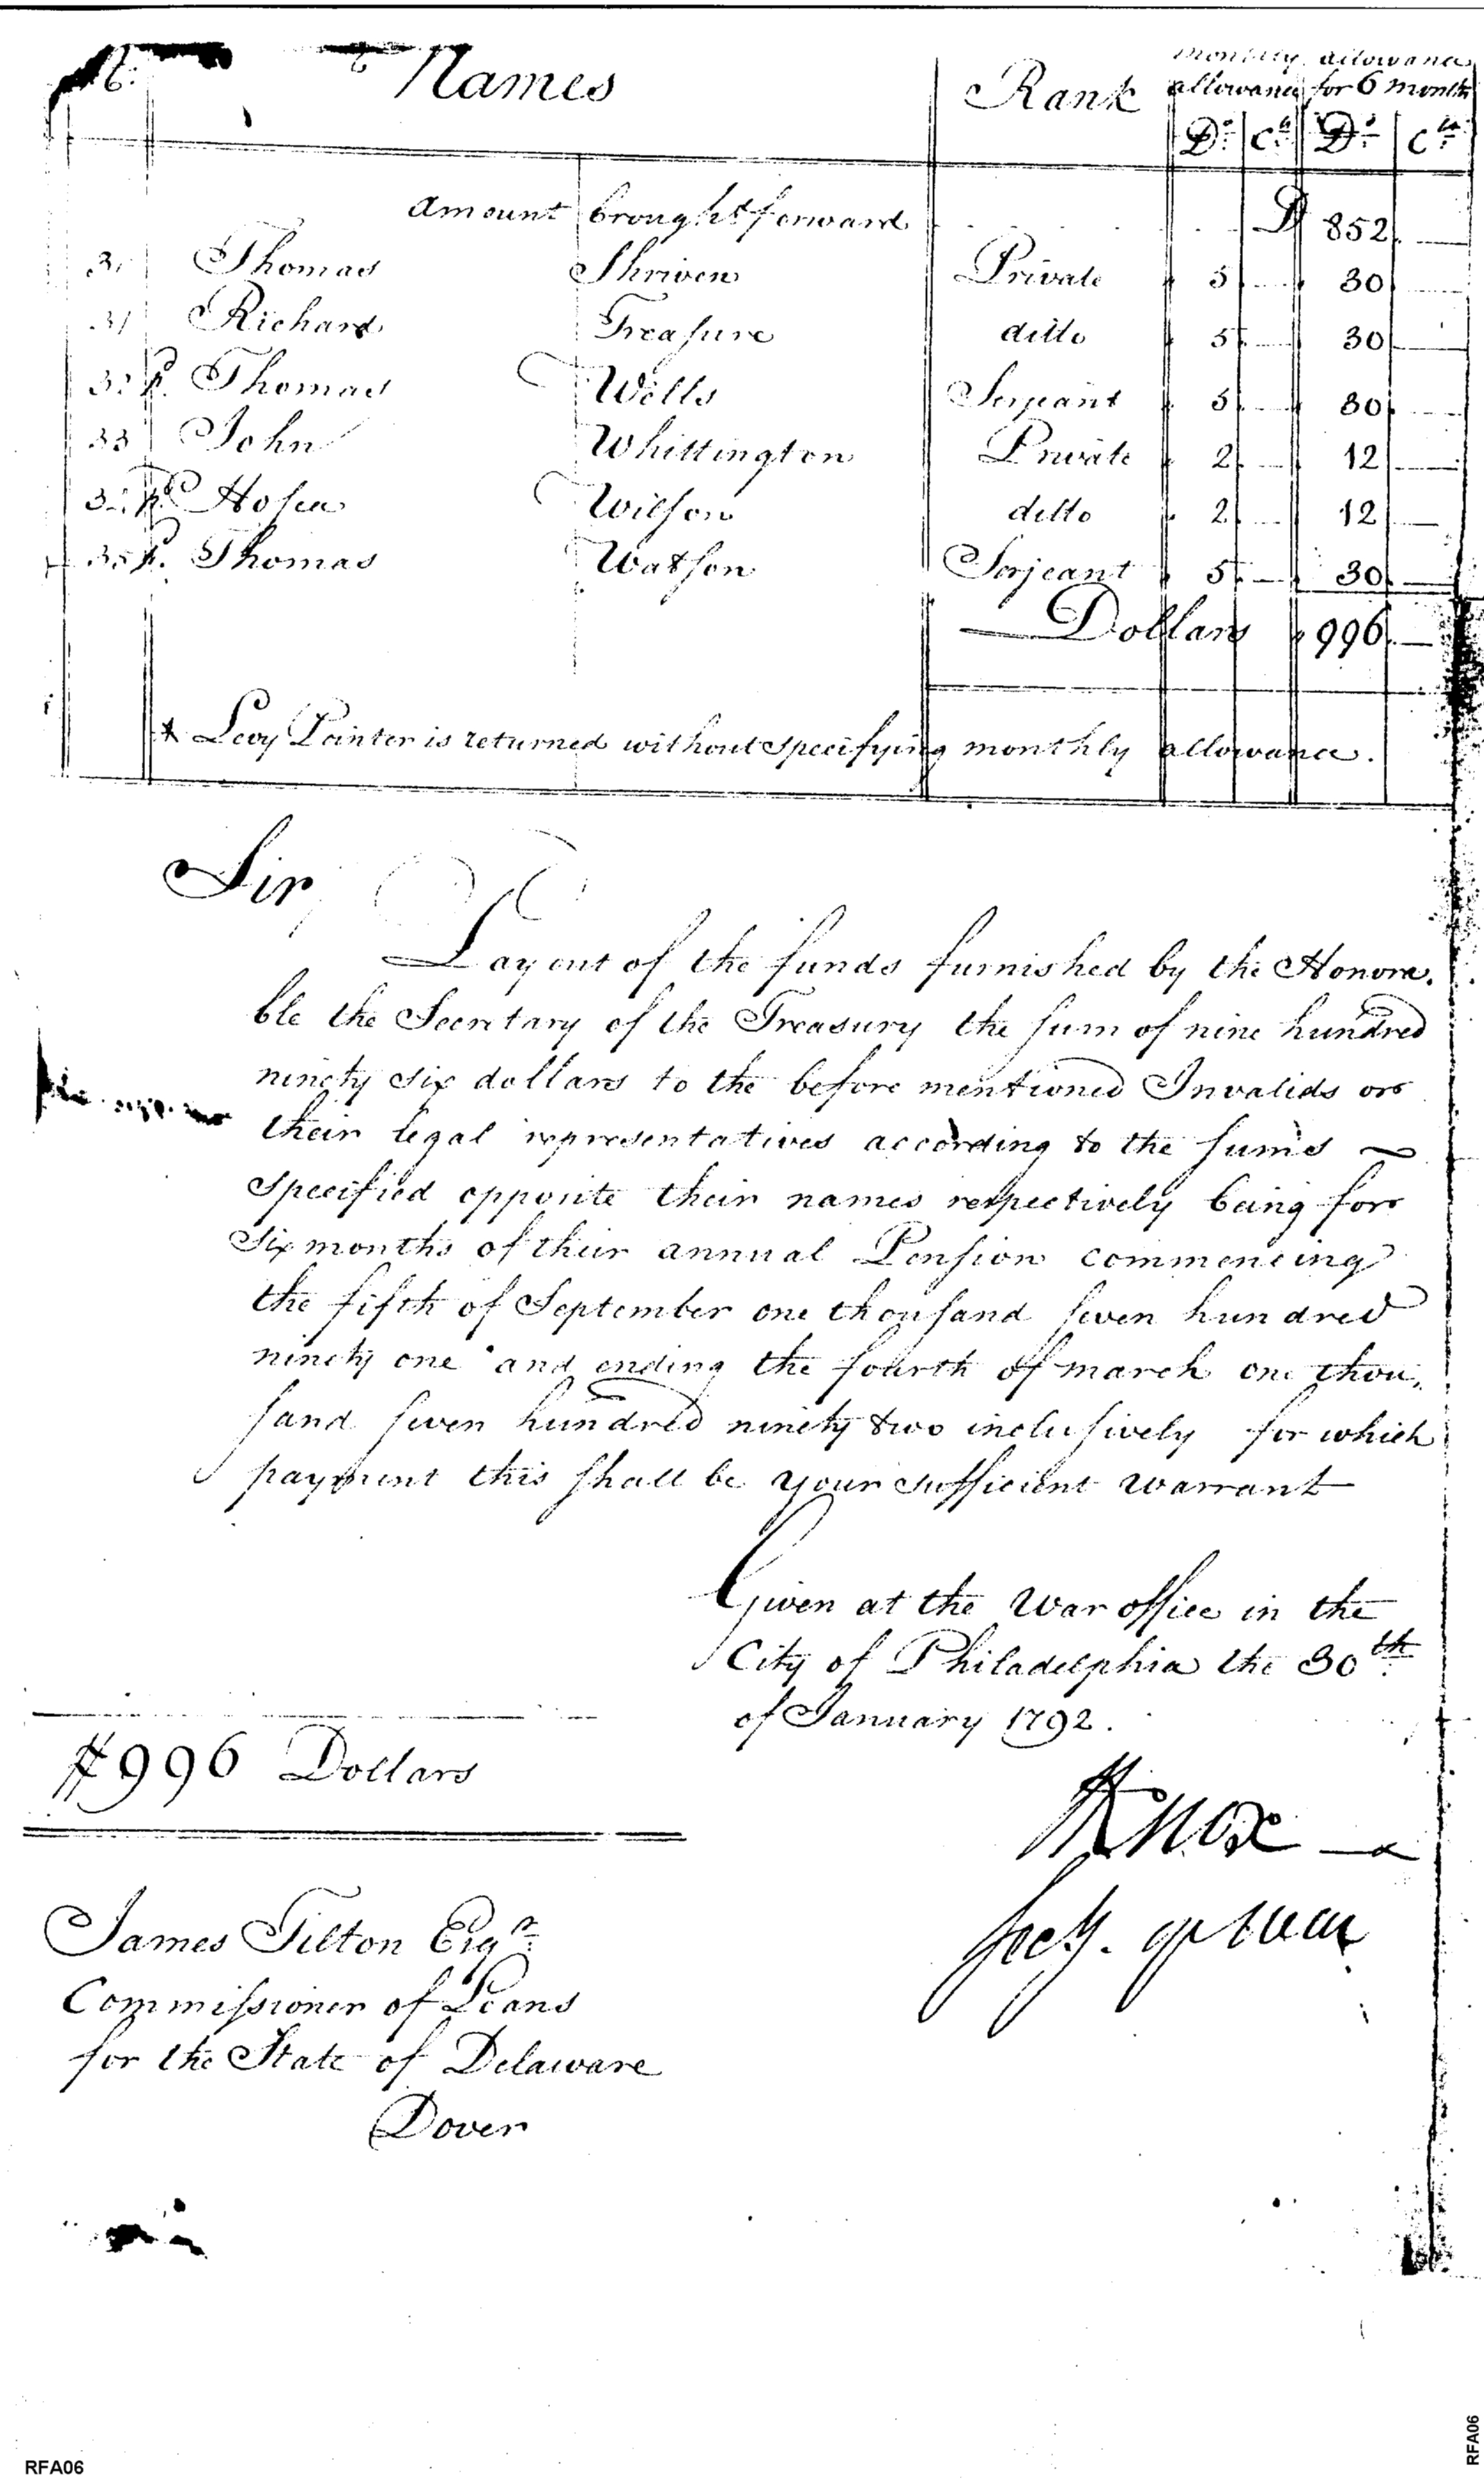 Names Rank monthly allowance allowance for 6 months
Ds. Cts Ds. Cts
Amount brought forward D 852
Thomas Shriven Private 5 30
31 Richard Treasure ditto 5 30
p. Thomas Wells Serjeant 5 30
33 John Whittington Private 2 12
p. Hosea Wilson ditto 2 12
35 p. Thomas Watson Serjeant 5 30
Dollars 996
* Levy Painter is returned without specifying monthly allowance.
Sir,
Pay out of the funds furnished by the Honora.
ble the Secretary of the Treasury the sum of nine hundred
ninety six dollars to the before mentioned Invalids or
their legal representatives according to the sums
specified opposite their names respectively being for
six months of their annual Pension commencing
the fifth of September one thousand seven hundred
ninety one and ending the fourth of march one thou,
sand seven hundred ninety two inclusively for which
payment this shall be your sufficient warrant
Given at the War office in the
City of Philadelphia the 30th
of January 1792.
#996 Dollars
HKnox
Secy. of War
James Tilton Esqr.
Commissioner of Loans
for the State of Delaware
Dover
RFA06
RFA06